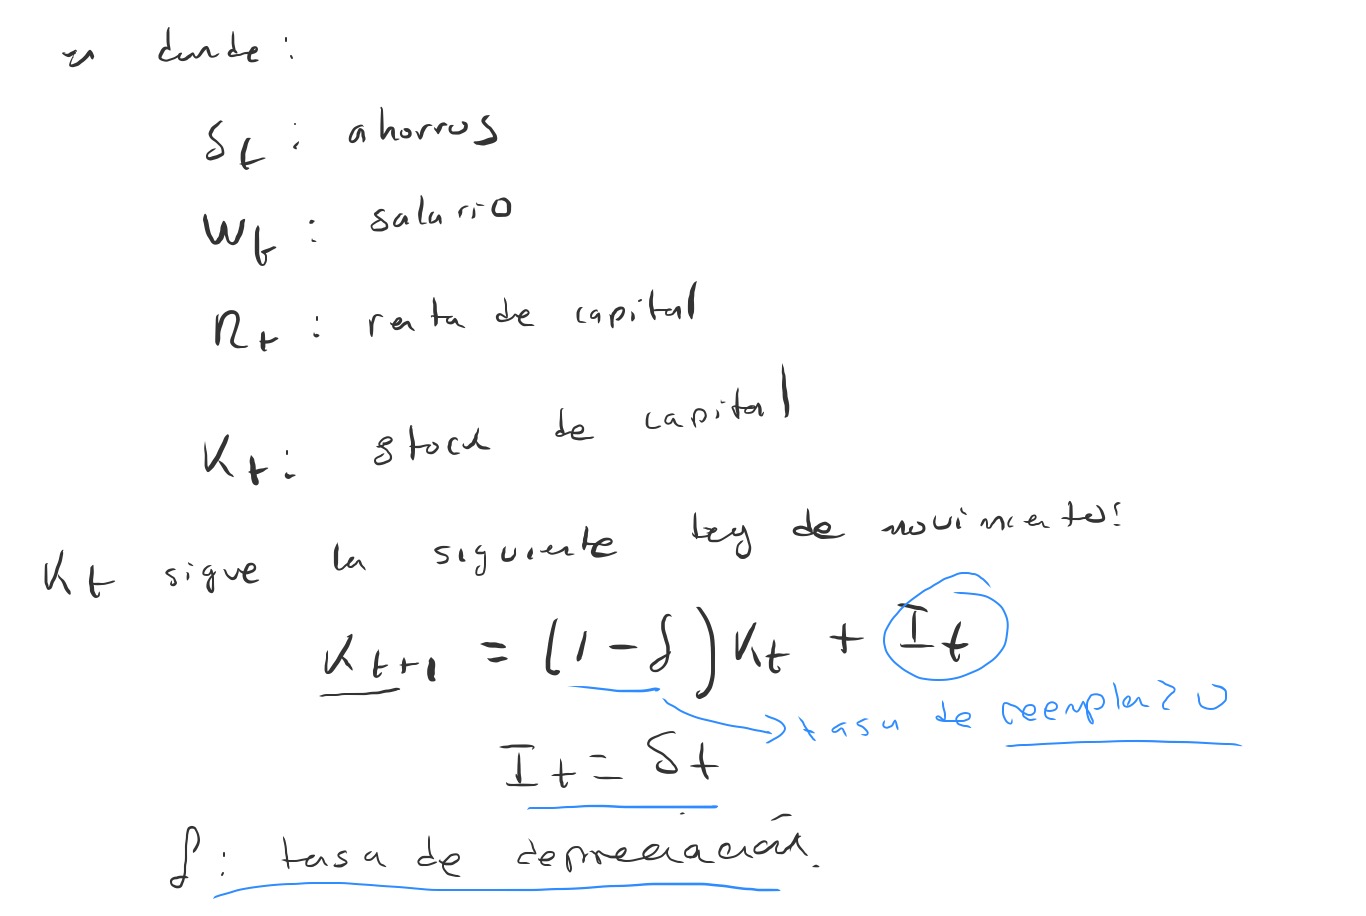 en donde:
St: ahorros
Wt: salario
Rt: renta de capital
Kt: stock de capital
Kt sigue la siguiente ley de movimiento:
Kt+1 = (1-δ)Kt + It
tasa de reemplazo
It = St
δ: tasa de depreciación.